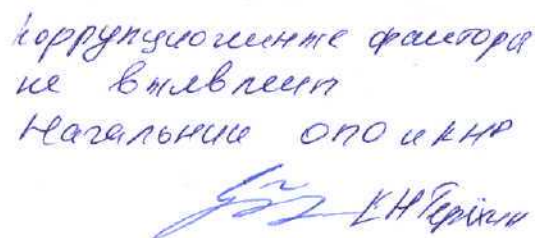 коррупциогенные факторы
не выявлены
Начальник ОПО и КНР
К Н Терёхин